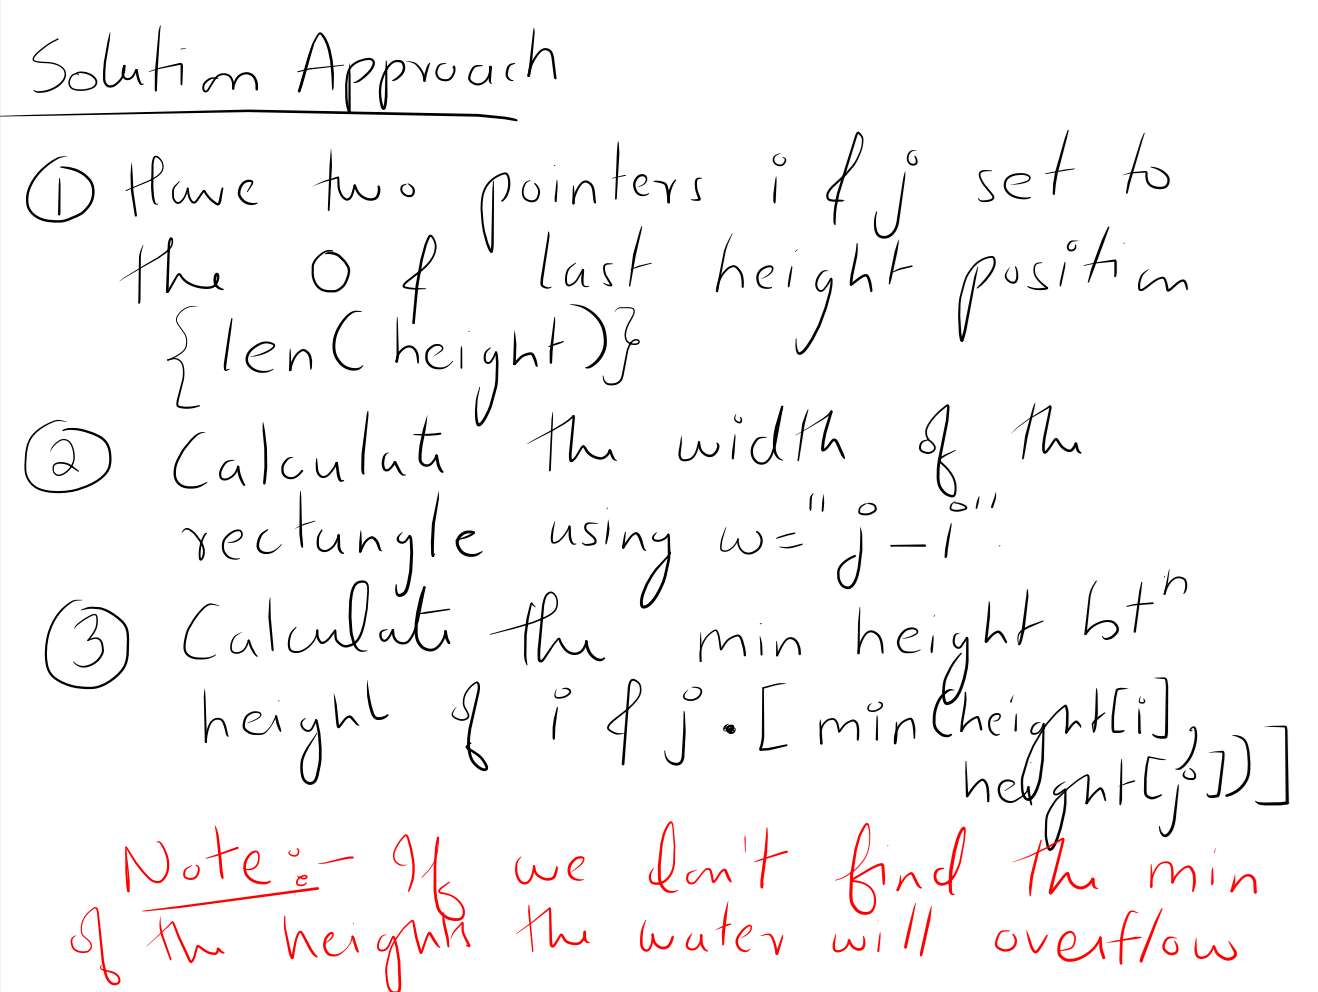 Solution Approach
① Have two pointers i & j set to
the 0 & last height position
{len(height)}
② Calculate the width of the
rectangle using w="j-i"
③ Calculate the min height btⁿ
height of i & j. [min(height[i],
height[j])]
Note:- If we don't find the min
of the heights the water will overflow